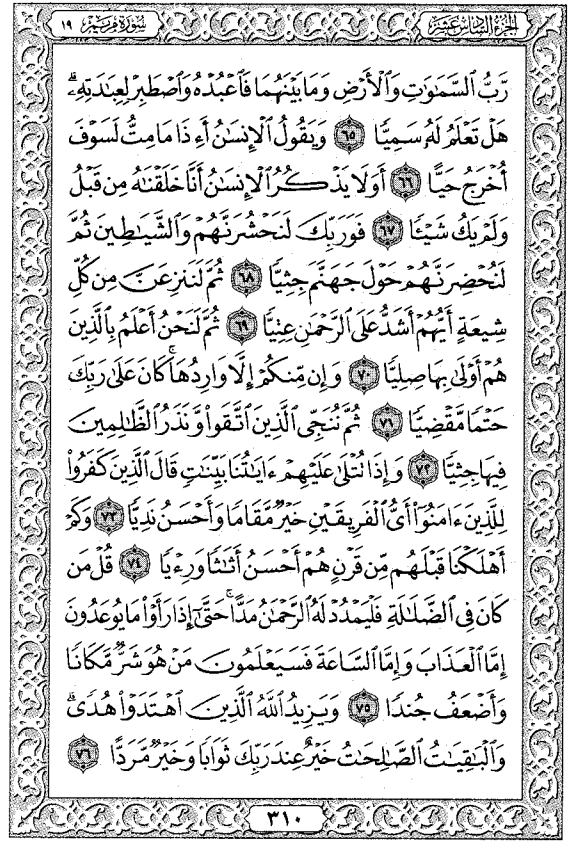 الجزء السادس عشر
سورة مريم ١٩
رَّبُّ ٱلسَّمَٰوَٰتِ وَٱلْأَرْضِ وَمَا بَيْنَهُمَا فَٱعْبُدْهُ وَٱصْطَبِرْ لِعِبَٰدَتِهِۦۚ
هَلْ تَعْلَمُ لَهُۥ سَمِيًّا ٦٥ وَيَقُولُ ٱلْإِنسَٰنُ أَءِذَا مَا مِتُّ لَسَوْفَ
أُخْرَجُ حَيًّا ٦٦ أَوَلَا يَذْكُرُ ٱلْإِنسَٰنُ أَنَّا خَلَقْنَٰهُ مِن قَبْلُ
وَلَمْ يَكُ شَيْـًٔا ٦٧ فَوَرَبِّكَ لَنَحْشُرَنَّهُمْ وَٱلشَّيَٰطِينَ ثُمَّ
لَنُحْضِرَنَّهُمْ حَوْلَ جَهَنَّمَ جِثِيًّا ٦٨ ثُمَّ لَنَنزِعَنَّ مِن كُلِّ
شِيعَةٍ أَيُّهُمْ أَشَدُّ عَلَى ٱلرَّحْمَٰنِ عِتِيًّا ٦٩ ثُمَّ لَنَحْنُ أَعْلَمُ بِٱلَّذِينَ
هُمْ أَوْلَىٰ بِهَا صِلِيًّا ٧٠ وَإِن مِّنكُمْ إِلَّا وَارِدُهَاۚ كَانَ عَلَىٰ رَبِّكَ
حَتْمًا مَّقْضِيًّا ٧١ ثُمَّ نُنَجِّى ٱلَّذِينَ ٱتَّقَوا۟ وَّنَذَرُ ٱلظَّٰلِمِينَ
فِيهَا جِثِيًّا ٧٢ وَإِذَا تُتْلَىٰ عَلَيْهِمْ ءَايَٰتُنَا بَيِّنَٰتٍ قَالَ ٱلَّذِينَ كَفَرُوا۟
لِلَّذِينَ ءَامَنُوٓا۟ أَىُّ ٱلْفَرِيقَيْنِ خَيْرٌ مَّقَامًا وَأَحْسَنُ نَدِيًّا ٧٣ وَكَمْ
أَهْلَكْنَا قَبْلَهُم مِّن قَرْنٍ هُمْ أَحْسَنُ أَثَٰثًا وَرِءْيًا ٧٤ قُلْ مَن
كَانَ فِى ٱلضَّلَٰلَةِ فَلْيَمْدُدْ لَهُ ٱلرَّحْمَٰنُ مَدًّاۚ حَتَّىٰٓ إِذَا رَأَوْا۟ مَا يُوعَدُونَ
إِمَّا ٱلْعَذَابَ وَإِمَّا ٱلسَّاعَةَ فَسَيَعْلَمُونَ مَنْ هُوَ شَرٌّ مَّكَانًا
وَأَضْعَفُ جُندًا ٧٥ وَيَزِيدُ ٱللَّهُ ٱلَّذِينَ ٱهْتَدَوْا۟ هُدًىۗ
وَٱلْبَٰقِيَٰتُ ٱلصَّٰلِحَٰتُ خَيْرٌ عِندَ رَبِّكَ ثَوَابًا وَخَيْرٌ مَّرَدًّا ٧٦
٣١٠